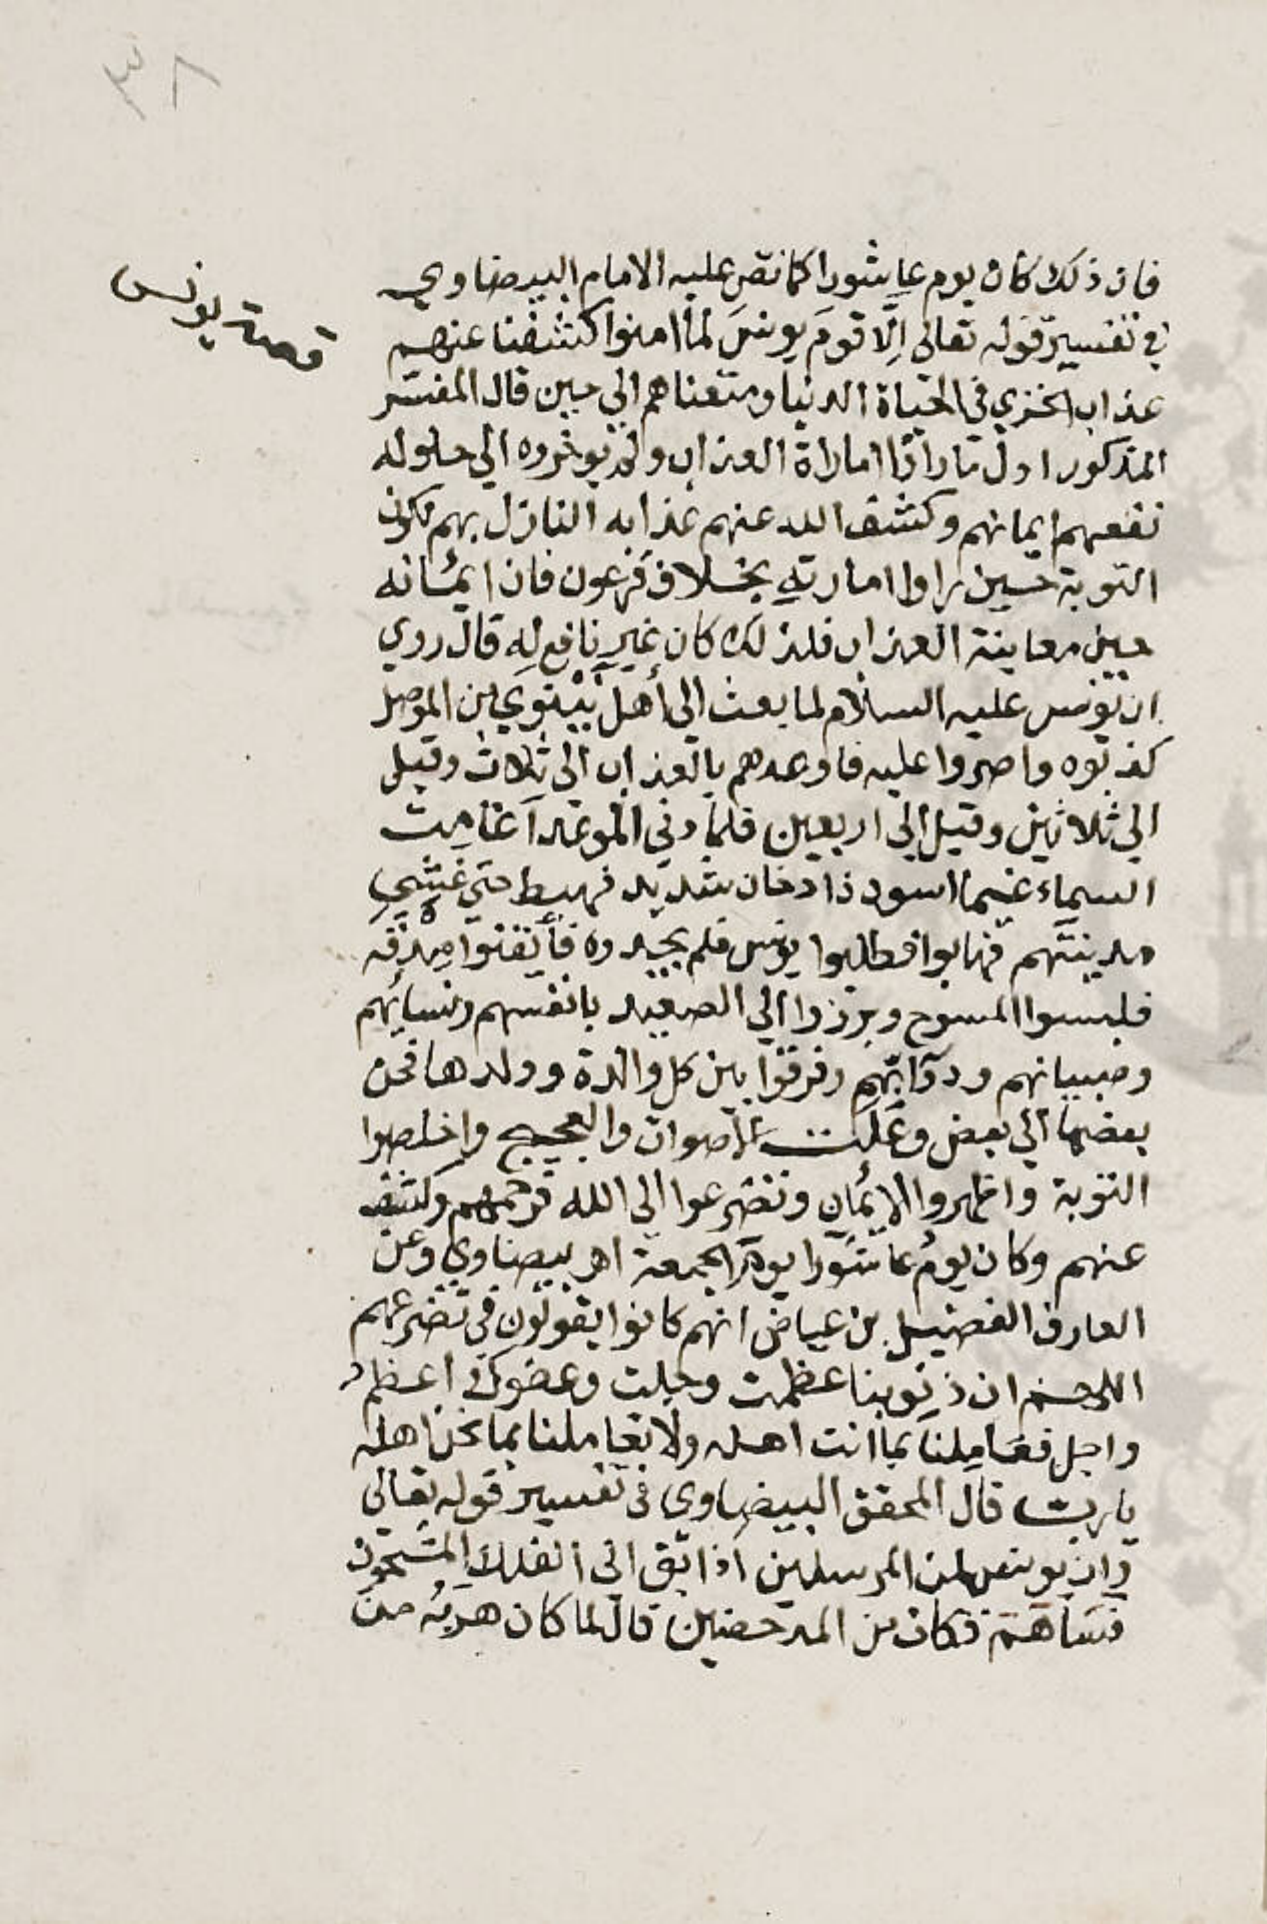 ٣٨
قصة يونس
فان ذلك كان يوم عاشورا كما نص عليه الامام البيضاوي
في تفسير قوله تعالى اِلَّا قومَ يونسَ لما امنوا كشفنا عنهم
عذاب الخزي في الحياة الدنيا ومتعناهم الي حين قال المفسر
المذكور اول ما راوا اماراة العذاب ولم يوخروه الي حلوله
نفعهم ايمانهم وكشف الله عنهم عذابه النازل بهم لكون
التوبة حين راوا امارته بخلاف فرعون فان ايمانه
حين معاينة العذاب فلذلك كان غير نافع له قال روي
ان يونس عليه السلام لما بعث الي أهل نينوي من الموصل
كذبوه واصروا عليه فاوعدهم بالعذاب الى ثلاث وقيل
الي ثلاثين وقيل الي اربعين فلما دني الموعد آغامت
السماء غيما اسود ذا دخان شديد فهبط حتي غشي
مدينتهم فهابوا فطلبوا يونس فلم يجدوه فأيقنوا صدقه
فلبسوا المسوح وبرزوا الي الصعيد بانفسهم ونسايهم
وصبيانهم ودوابّهم وفرقوا بين كل والدة وولدها فحن
بعضها الي بعض وعَلَت الاصوات والعجيج واخلصوا
التوبة واظهروا الايمان وتضرعوا الي الله فرحمهم وكشف
عنهم وكان يوم عاشورا يوم الجمعة اهـ بيضاوي وعن
العارف الفضيل بن عياض انهم كانوا يقولون في تضرعهم
اللهم ان ذنوبنا عظمت وجلت وعفوك اعظم
واجل فعاملنا بما انت اهله ولا تعاملنا بما نحن اهله
يا رب قال المحقق البيضاوي في تفسير قوله تعالى
وان يونس لمن المرسلين اذ ابق الي الفلك المشحون
فساهم فكان من المدحضين قال لما كان هربه من